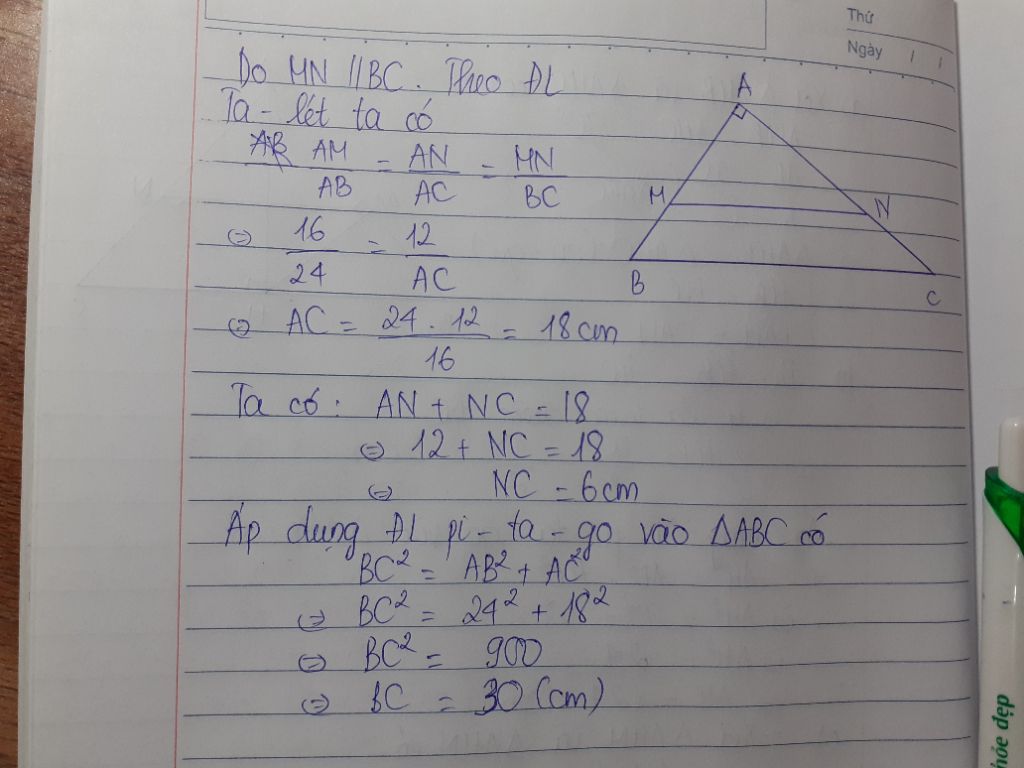 Thứ
Ngày / /
Do MN // BC. Theo ĐL
Ta-lét ta có
AM/AB = AN/AC = MN/BC
⇔ 16/24 = 12/AC
⇔ AC = 24 . 12/16 = 18cm
Ta có: AN + NC = 18
⇔ 12 + NC = 18
⇔ NC = 6cm
Áp dụng ĐL pi-ta-go vào ΔABC có
BC² = AB² + AC²
⇔ BC² = 24² + 18²
⇔ BC² = 900
⇔ BC = 30 (cm)
A
M
N
B
C
đẹp